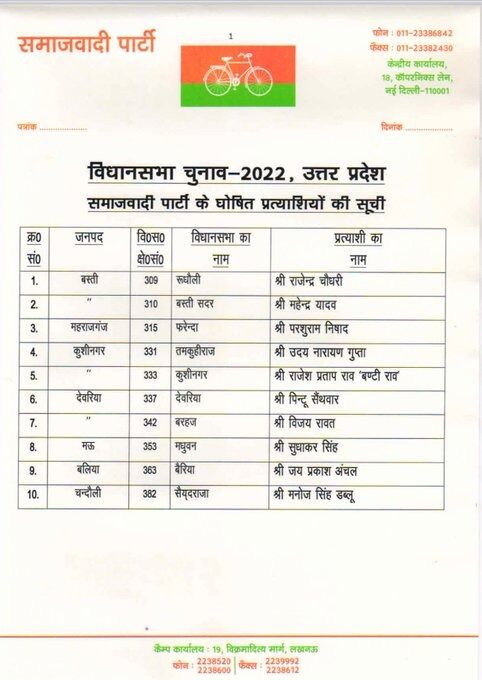 1
समाजवादी पार्टी
फोन : 011-23386842
फैक्स : 011-23382430
केन्द्रीय कार्यालय,
18, कॉपरनिक्स लेन,
नई दिल्ली-110001
पत्रांक ....................
दिनांक ....................
विधानसभा चुनाव-2022, उत्तर प्रदेश
समाजवादी पार्टी के घोषित प्रत्याशियों की सूची
क्र0 सं0 जनपद वि0स0 क्षे0सं0 विधानसभा का नाम प्रत्याशी का नाम
1. बस्ती 309 रूधौली श्री राजेन्द्र चौधरी
2. " 310 बस्ती सदर श्री महेन्द्र यादव
3. महराजगंज 315 फरेन्दा श्री परशुराम निषाद
4. कुशीनगर 331 तमकुहीराज श्री उदय नारायण गुप्ता
5. " 333 कुशीनगर श्री राजेश प्रताप राव 'बण्टी राव'
6. देवरिया 337 देवरिया श्री पिन्टू सैंथवार
7. " 342 बरहज श्री विजय रावत
8. मऊ 353 मधुवन श्री सुधाकर सिंह
9. बलिया 363 बैरिया श्री जय प्रकाश अंचल
10. चन्दौली 382 सैय्दराजा श्री मनोज सिंह डब्लू
कैम्प कार्यालय : 19, विक्रमादित्य मार्ग, लखनऊ
फोन : 2238520 2238600 फैक्स : 2239992 2238612